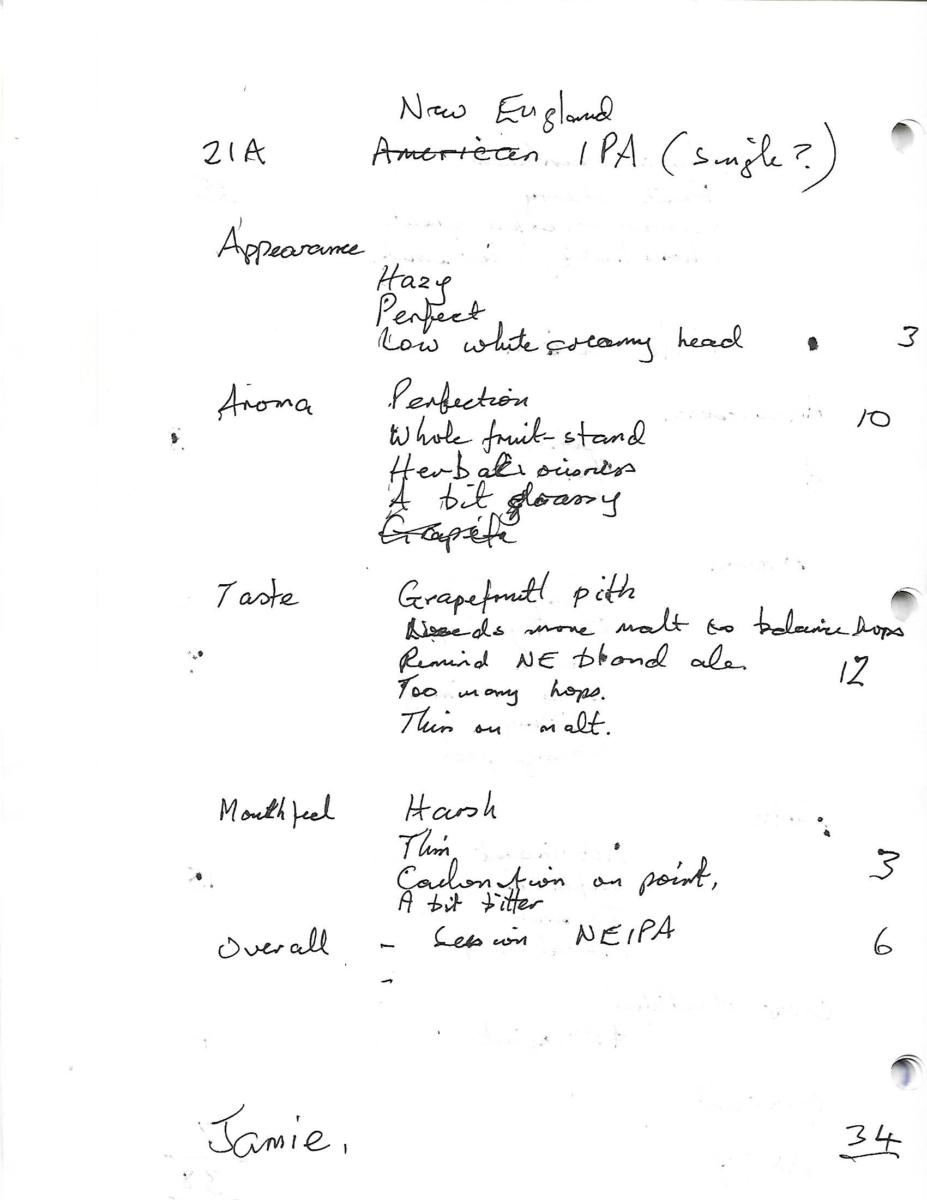 New England
21A American IPA (single?)
Appearance
Hazy
Perfect
Low white creamy head 3
Aroma Perfection 10
Whole fruit-stand
Herbaliciousness
A bit grassy
Grapefr
Taste Grapefruit pith
Needs more malt to balance hops
Remind NE blond ale. 12
Too many hops.
Thin on malt.
Mouthfeel Harsh
Thin 3
Carbonation on point,
A bit bitter
Overall - Session NEIPA 6
-
Jamie. 34